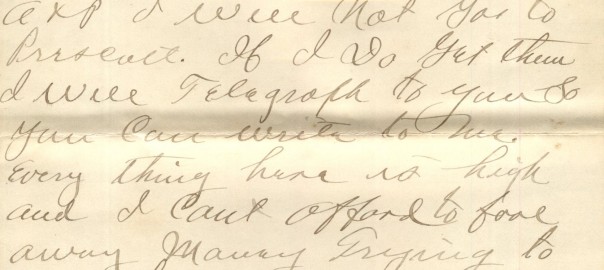 exp I Will Not Go to
Prescott. If I Do Get them
I Will Telegraph to you So
you Can write to me.
Every thing here is high
and I Cant afford to fool
away Money Trying to